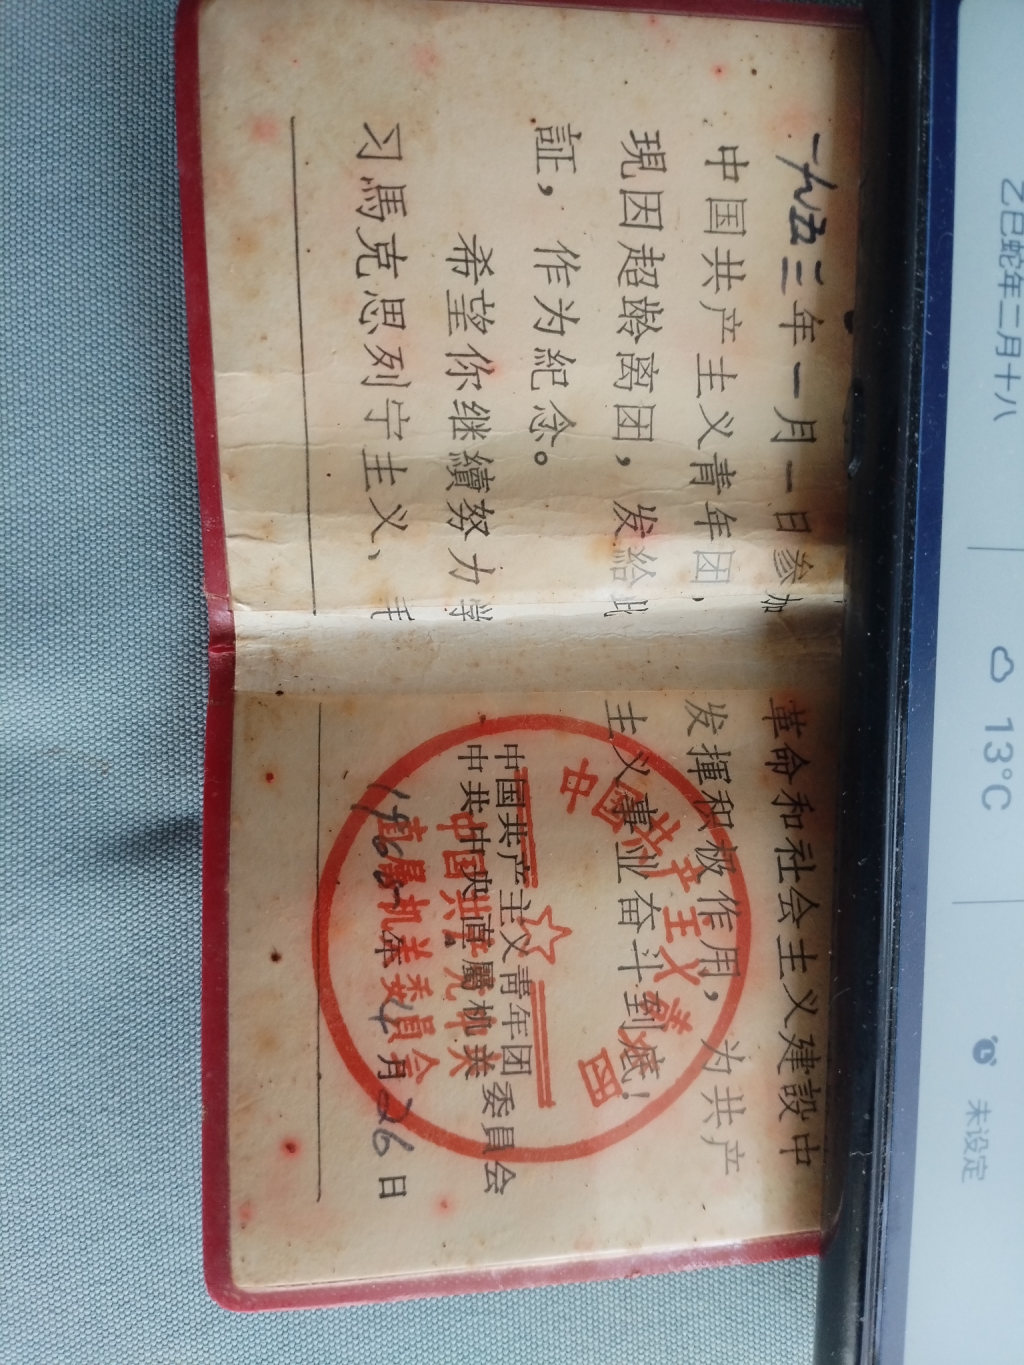 一九五三年一月一日参加
中国共产主义青年团，
現因超龄离团，发給此
証，作为紀念。
希望你继續努力学
习馬克思列宁主义、
革命和社会主义建設中
发揮积极作用，为共产
主义事业奋斗到底！
中国共产主义青年团
中共中央直屬机关委員会
月26日
中国共产主义青年团
中国共产党中央
直屬机关委員会
乙巳蛇年二月十八
13°C
未设定